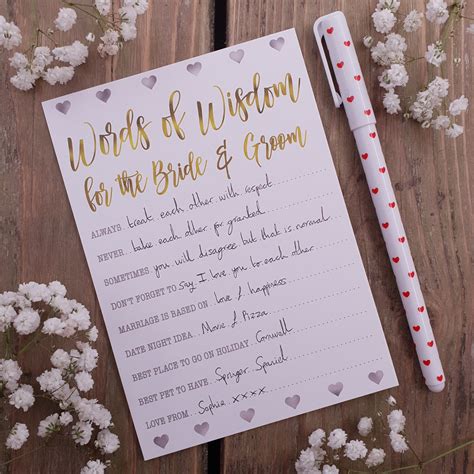 Words of Wisdom
for the Bride & Groom
ALWAYS treat each other with respect
NEVER take each other for granted
SOMETIMES you will disagree but that is normal
DON'T FORGET TO Say I love you to each other
MARRIAGE IS BASED ON love & happiness
DATE NIGHT IDEA Movie & Pizza
BEST PLACE TO GO ON HOLIDAY Cornwall
BEST PET TO HAVE Springer Spaniel
LOVE FROM Sophie xxxx